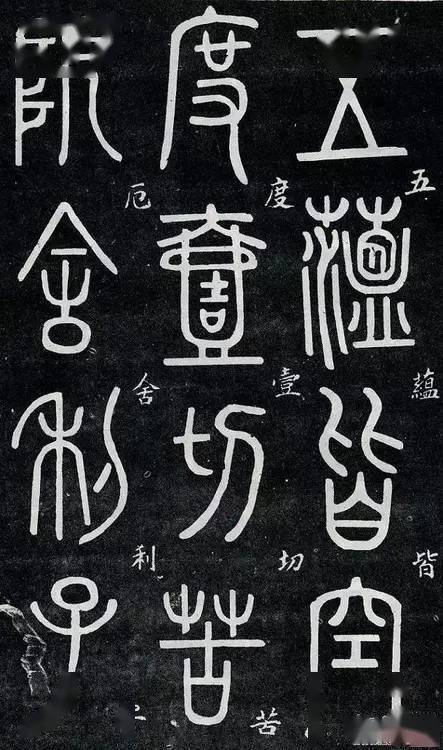 五蘊皆空
五蘊皆
度壹切苦
度壹切苦
阨舍利子
厄舍利